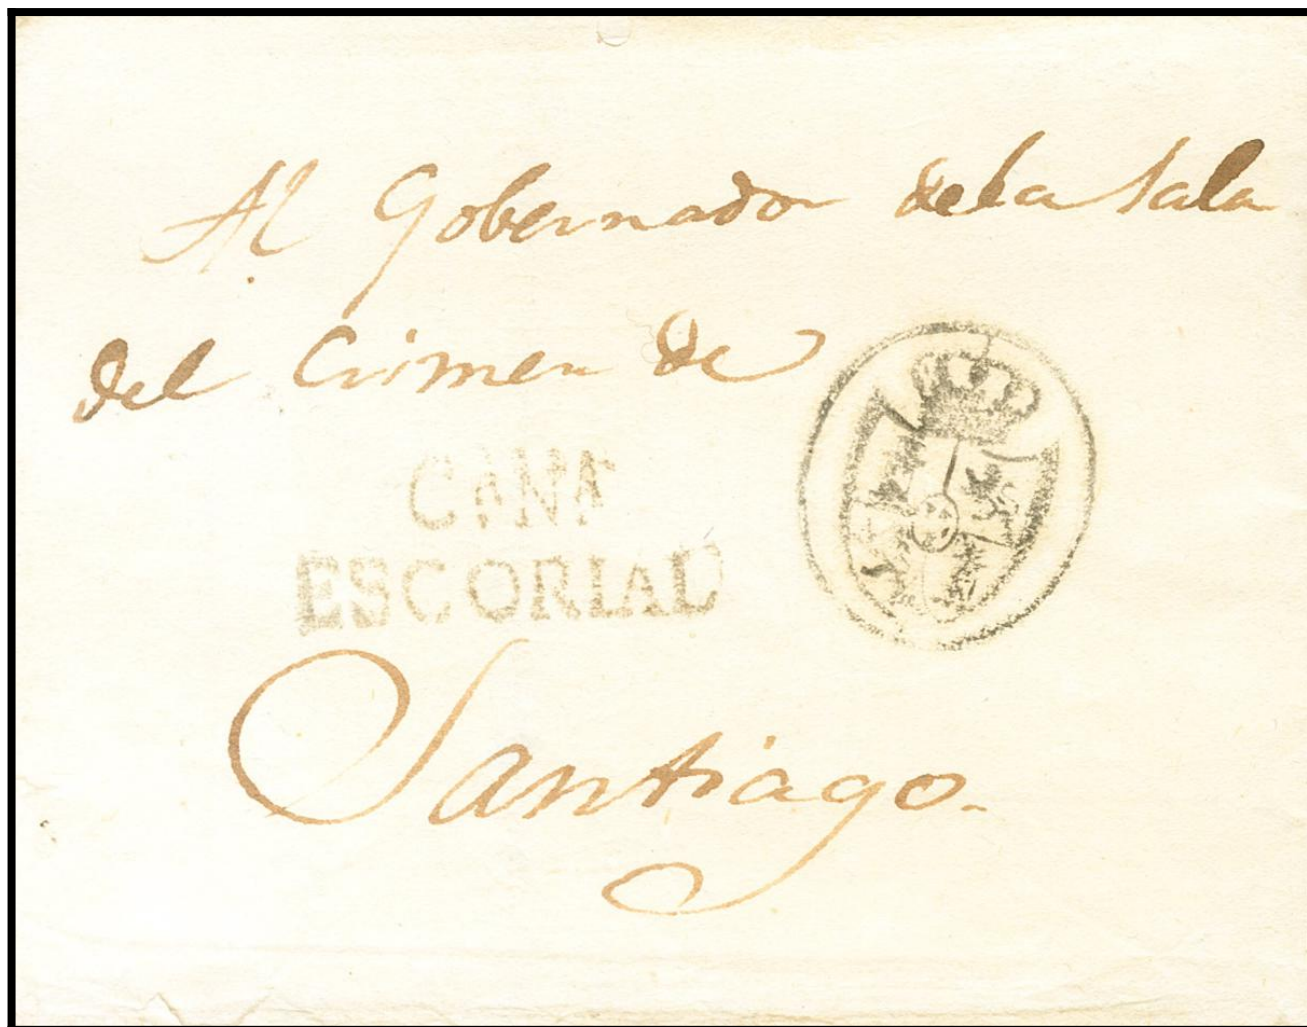 Al Gobernador dela Sala
del Crimen de
ESCORIAL
Santiago.